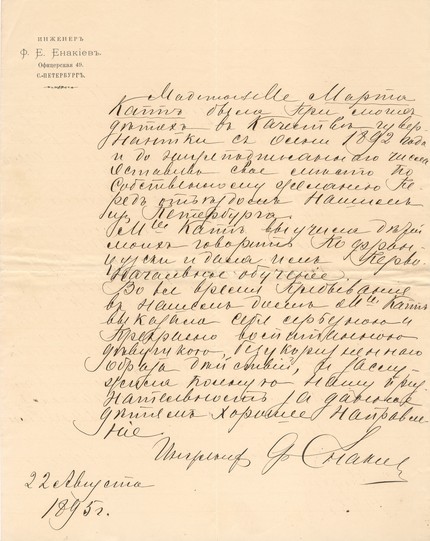 ИНЖЕНЕРЪ
Ф. Е. Енакіевъ.
Офицерская 40.
С.-ПЕТЕРБУРГЪ.
Mademoiselle Марта
Каттъ была при моихъ
дѣтяхъ въ качествѣ гувер-
нантки съ осени 1892 года
и до нижеподписаннаго числа
оставивъ свое мѣсто по
собственному желанію пе-
редъ отъѣздомъ нашимъ
изъ Петербурга.
Mlle Каттъ выучила дѣтей
моихъ говорить по фран-
цузски и дала имъ перво-
начальное обученіе.
Во все время пребыванія
въ нашемъ домѣ Mlle Каттъ
выказала себя серьезною и
прекрасно воспитанною
дѣвушкою, безукоризненнаго
образа дѣйствій, и заслу-
жила полную нашу приз
нательность за данное
дѣтямъ хорошее направле-
ніе
Инженеръ Ф Енакіев
22 Августа
1895 г.